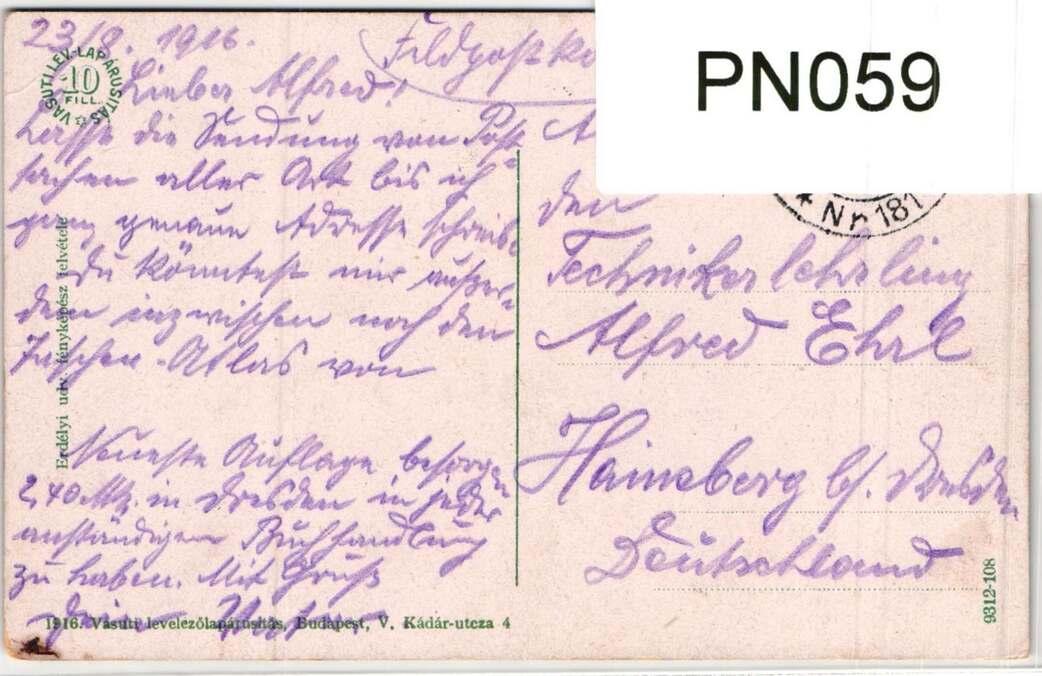 23/8. 1916.
Feldpostka
VASUTI LEV.-LAPÁRUSITÁS
10
FILL.
PN059
Lieber Alfred!
Lasse die Sendung von Post-
sachen aller Art bis ich
ganz genaue Adresse schreib.
Du könntest mir außer-
dem inzwischen noch den
Taschen-Atlas von
Neueste Auflage besorgen
2,40 Mk. in Dresden in jeder
anständigen Buchhandlung
zu haben. Mit Gruß
Dein Vater
Erdélyi udv. fényképész felvétele
1916. Vasuti levelezőlapárusitás, Budapest, V. Kádár-utcza 4
A
* Nr. 181
den
Technikerlehrling
Alfred Ehrl
Hainsberg b/. Dresden
Deutschland
9312-108